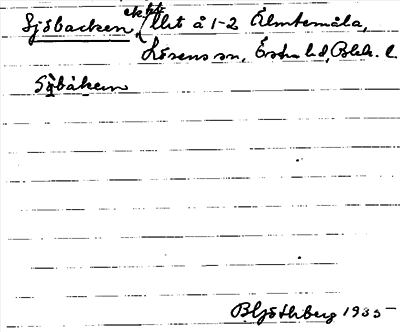 Sjöbacken, ek. bet. Utst å 1-2 Älmtemåla,
Lösens sn, Östra hd, Blek. l.
Sjöbåken
B Ljöthberg 1935